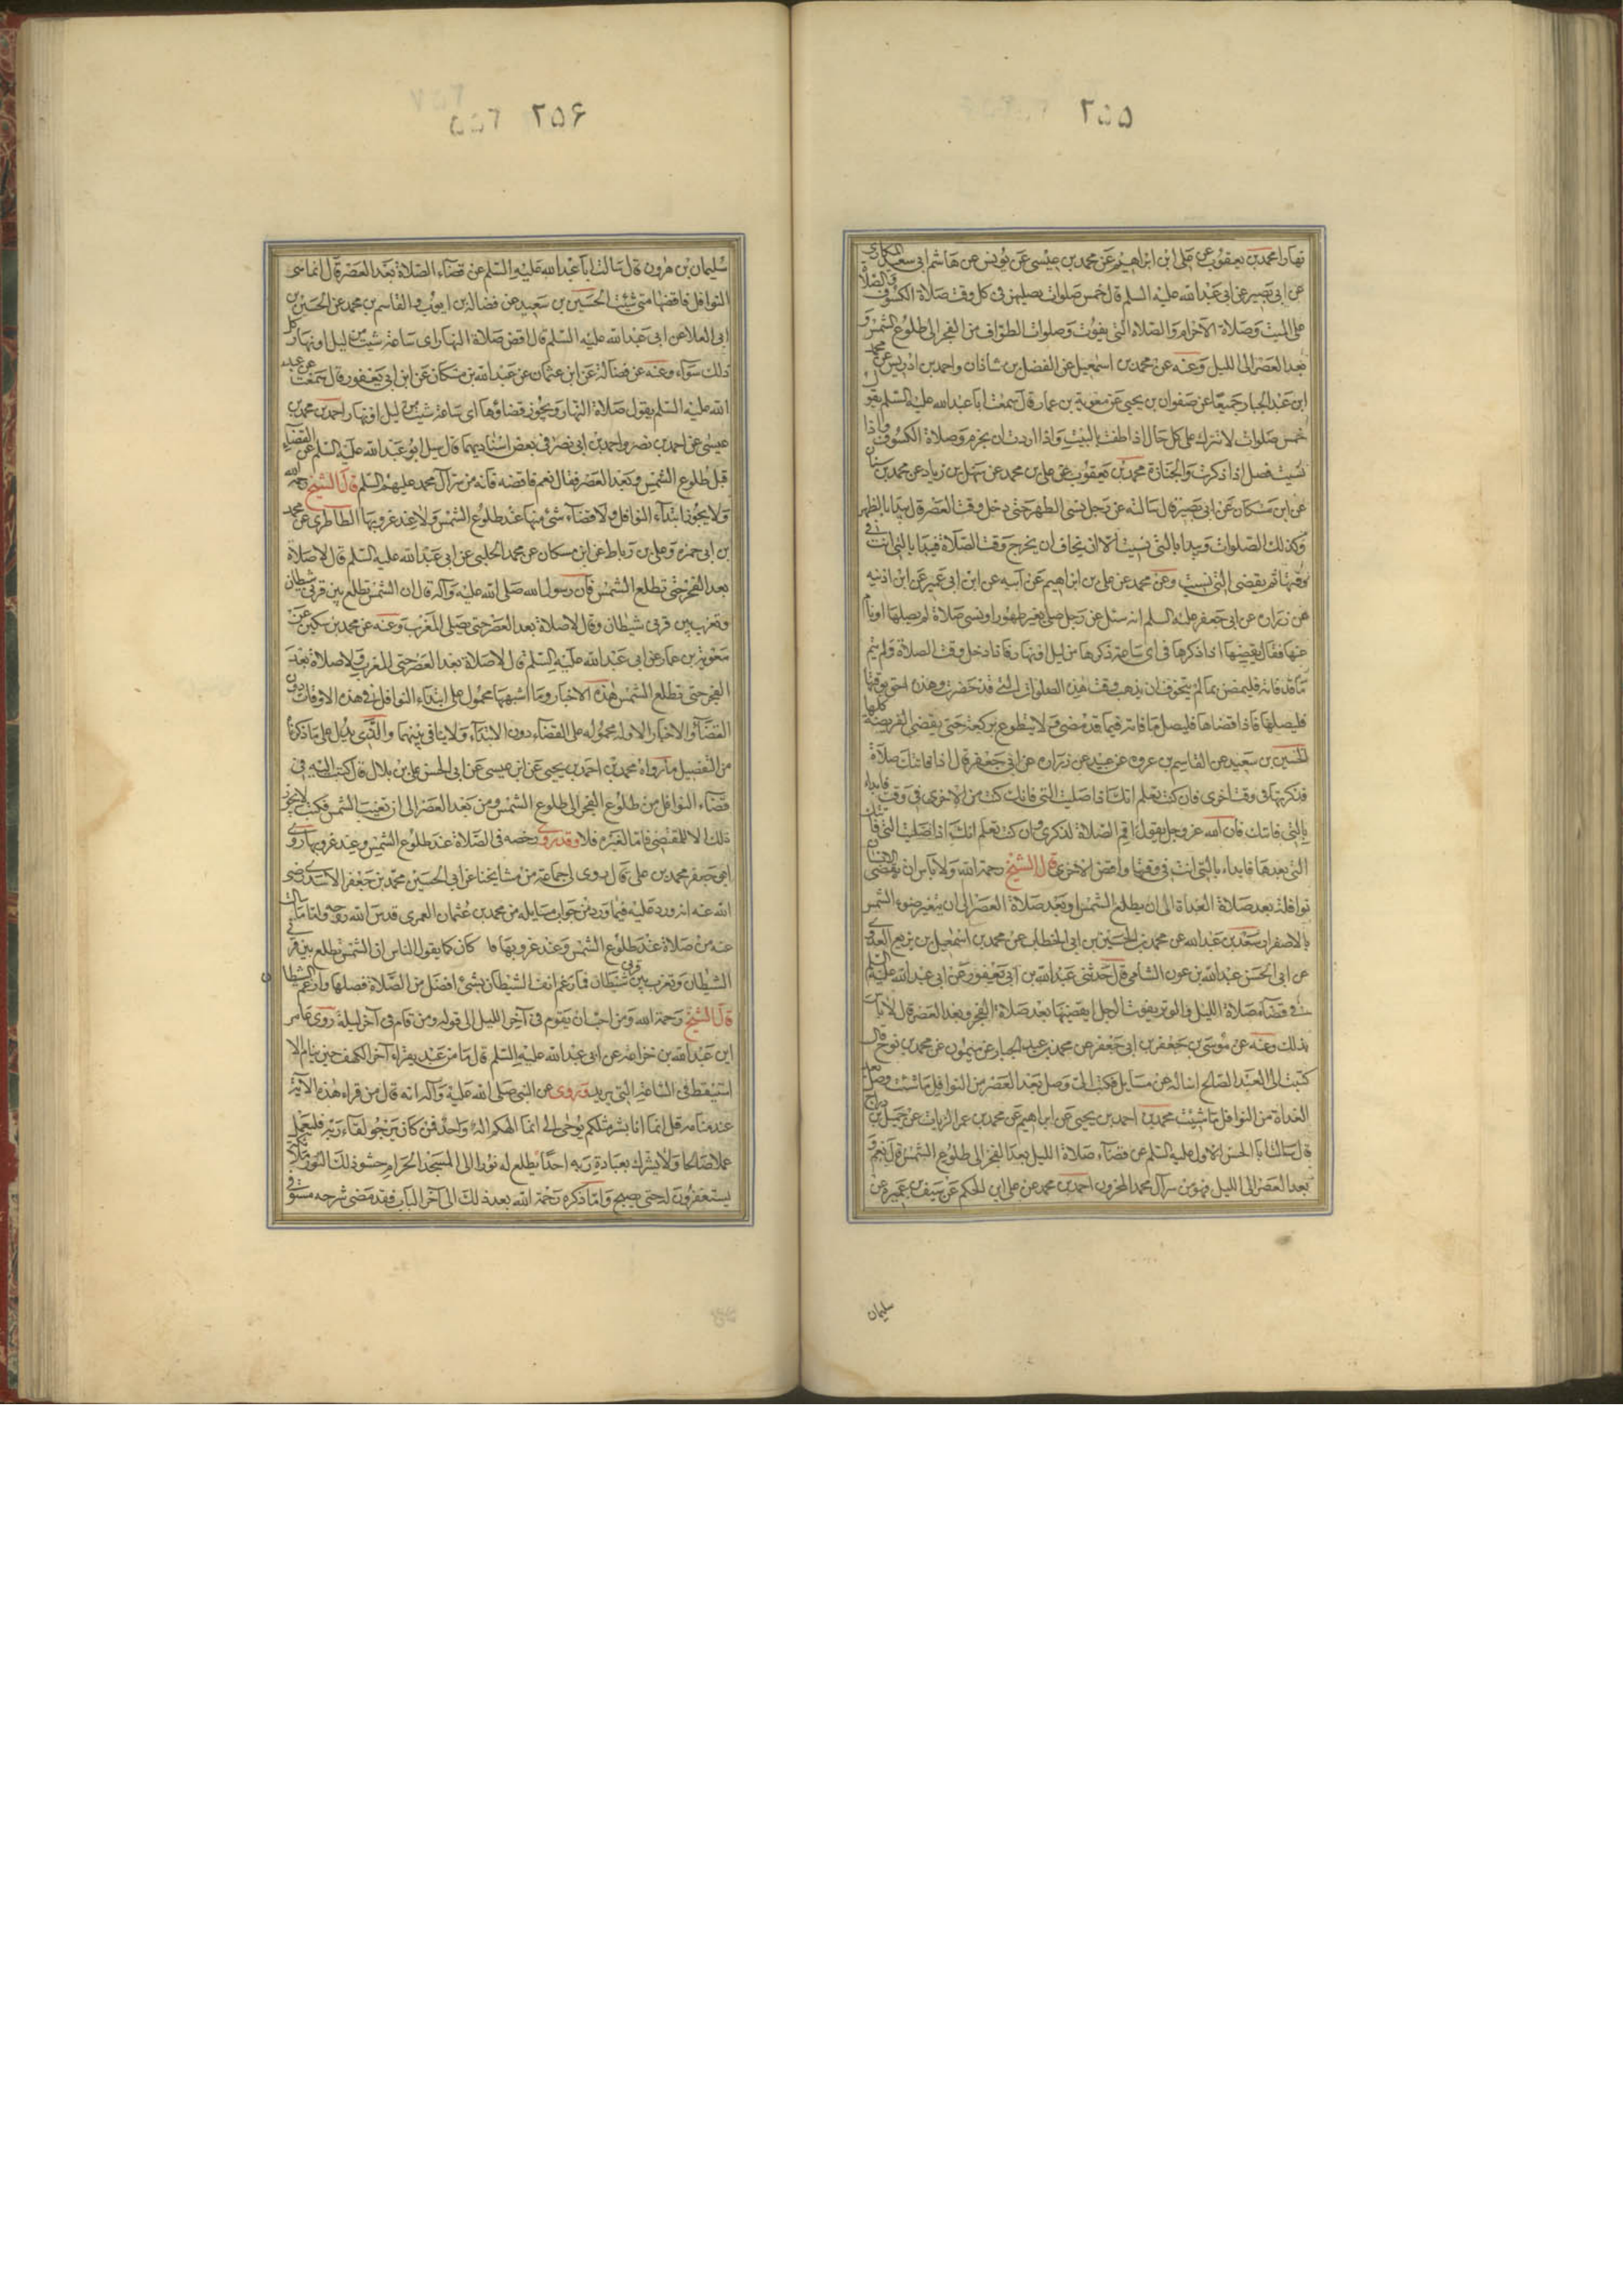 ٢٥٥
نهارا محمد بن يعقوب عن على ابن ابراهيم عن محمد بن عيسى عن يونس عن هاشم ابى سعيد المكارى
عن ابى بصير عن ابى عبد الله عليه السلم قال خمس صلوات تصليهن فى كل وقت صلاة الكسوف والصلاة
على الميت وصلاة الاحرام والصلاة التى يفوت وصلوات الطواف من الفجر الى طلوع الشمس و
بعد العصر الى الليل وعنه عن محمد بن اسمعيل عن الفضل بن شاذان واحمد بن ادريس عن محمد
ابن عبد الجبار جميعا عن صفوان بن يحيى عن معوية بن عمار قال سمعت ابا عبد الله عليه السلم يقول
خمس صلوات لا تترك على كل حال اذا طفت بالبيت واذا اردت ان يحرم وصلاة الكسوف واذا
نسيت فصل اذا ذكرت والجنازة محمد بن يعقوب عن على بن محمد عن سهل بن زياد عن محمد بن سنان
عن ابن مسكان عن ابى بصير قال سالته عن رجل نسى الظهر حتى دخل وقت العصر قال يبدا بالظهر
وكذلك الصلوات ويبدا بالتى نسيت الا ان يخاف ان يخرج وقت الصلاة فيبدا بالتى انت فى
وقتها ثم يقضى التى نسيت وعن محمد عن على بن ابراهيم عن ابيه عن ابن ابى عمير عن ابن اذنيه
عن زرارة عن ابى جعفر عليه السلم انه سئل عن رجل صلى بغير طهور او نسى صلاة لم يصلها او نام
عنها فقال يقضيها اذا ذكرها فى اى ساعة ذكرها من ليل او نهار فاذا دخل وقت الصلاة ولم يتم
ما قد فاته فليقض ما لم يتخوف ان يذهب وقت هذه الصلوات التى قد حضرت وهذه احق بوقتها
فليصلها فاذا قضاها فليصل ما فاته فيما قد مضى ولا يتطوع بركعة حتى يقضى الفريضة كلها
الحسين بن سعيد عن القاسم بن عروة عن عبيد عن زرارة عن ابى جعفر قال اذا فاتتك صلاة
فذكرتها فى وقت اخرى فان كنت تعلم انك اذا صليت التى فاتتك كنت من الاخرى فى وقت فابداء
بالتى فاتتك فان الله عز وجل يقول اقم الصلاة لذكرى وان كنت تعلم انك اذا صليت التى فاتتك
التى بعدها فابداء بالتى انت فى وقتها واقض الاخرى قال الشيخ رحمه الله ولا باس ان يقضى الانسان
نوافله بعد صلاة الغداة الى ان يطلع الشمس وبعد صلاة العصر الى ان يتغير ضوء الشمس
بالاصفرار سعد بن عبد الله عن محمد بن الحسين بن ابى الخطاب عن محمد بن اسمعيل بن بزيع العدوى
عن ابى الحسن عبد الله بن عون الشامى قال حدثنى عبد الله بن ابى يعفور عن ابى عبد الله عليه السلم
فى قضاء صلاة الليل والوتر يفوت الرجل ايقضيها بعد صلاة الفجر وبعد العصر قال لا باس
بذلك وعنه عن موسى بن جعفر بن ابى جعفر عن محمد بن عبد الجبار عن ميمون عن محمد بن فرج قال
كتبت الى العبد الصالح اساله عن مسايل فكتب الى وصل بعد العصر من النوافل ما شئت وصل بعد
الغداة من النوافل ما شيت محمد بن احمد بن يحيى عن ابراهيم عن محمد بن عمر الزيات عن جميل بن دراج
قال سالت ابا الحسن الاول عليه السلم عن قضاء صلاة الليل بعد الفجر الى طلوع الشمس قال نعم و
بعد العصر الى الليل فهو من سر آل محمد المخزون احمد بن محمد عن على ابن الحكم عن سيف بن عميرة عن
سليمان
٢٥۶
سليمان بن هرون قال سالت ابا عبد الله عليه السلم عن قضاء الصلاة بعد العصر قال انما هى
النوافل فاقضها متى شئت الحسين بن سعيد عن فضالة بن ايوب والقاسم بن محمد عن الحسين بن
ابى العلا عن ابى عبد الله عليه السلم قال اقض صلاة النهار اى ساعة شيت من ليل او نهار كل
ذلك سواء وعنه عن فضالة عن ابن عثمان عن عبد الله بن مسكان عن ابن ابى يعفور قال سمعت عن عبد
الله عليه السلم يقول صلاة النهار ويجوز قضاؤها اى ساعة شيت من ليل او نهار احمد بن محمد بن
عيسى عن احمد بن نصر واحمد بن ابى نصر فى بعض اسناديهما قال سئل ابو عبد الله عليه السلم عن القضاء
قبل طلوع الشمس وبعد العصر فقال نعم فاقضه فانه من سر آل محمد عليهم السلم قال الشيخ رحمه الله
ولا يجوز ابتداء النوافل ولا قضاء شئ منها عند طلوع الشمس ولا عند غروبها الطاطرى عن محمد
بن ابى حمزه وعلى بن رباط عن ابن مسكان عن محمد الحلبى عن ابى عبد الله عليه السلم قال لا صلاة
بعد الفجر حتى تطلع الشمس فان رسول الله صلى الله عليه وآله قال ان الشمس تطلع بين قرنى شيطان
وتغرب بين قرنى شيطان وقال لا صلاة بعد العصر حتى يصلى المغرب وعنه عن محمد بن سكين عن
معوية بن عمار عن ابى عبد الله عليه السلم قال لا صلاة بعد العصر حتى المغرب ولا صلاة بعد
الفجر حتى تطلع الشمس هذه الاخبار وما اشبهها محمول على ابتداء النوافل فى هذه الاوقات دون
القضاء والاخبار الاوله محموله على القضاء دون الابتداء ولا ينافى بينهما والذى يدل على ما ذكرناه
من التفصيل ما رواه محمد بن احمد بن يحيى عن ابن عيسى عن ابى الحسن على بن بلال قال كتبت اليه فى
قضاء النوافل من طلوع الفجر الى طلوع الشمس ومن بعد العصر الى ان تغيب الشمس فكتب لا يجوز
ذلك الا للمقتضى فاما لغيره فلا وقد روى رخصه فى الصلاة عند طلوع الشمس وعند غروبها روى
ابو جعفر محمد بن على قال روى لى جماعة من مشايخنا عن ابى الحسين محمد بن جعفر الاسدى رضى
الله عنه انه ورد عليه فيما ورد من جواب مسايله من محمد بن عثمان العمرى قدس الله روحه واما ما سالت
عنه من صلاة عند طلوع الشمس وعند غروبها فا كان كما يقول الناس ان الشمس تطلع بين قرنى
الشيطان وتغرب بين قرنى شيطان فما رغم انف الشيطان بشئ افضل من الصلاة فصلها وارغم الشيطان
قال الشيخ رحمه الله ومن احب ان يقوم فى آخر الليل الى قوله ومن قام فى آخر ليلة روى عامر
ابن عبد الله بن خزاعة عن ابى عبد الله عليه السلم قال ما من عبد يقراء آخر الكهف حين ينام الا
استيقظ فى الساعة التى يريد وروى عن النبى صلى الله عليه وآله انه قال من قراء هذه الآية
عند منامه قل انما انا بشر مثلكم يوحى الى انما الهكم اله واحد فمن كان يرجو لقاء ربه فليعمل
عملا صالحا ولا يشرك بعبادة ربه احدا يطلع له نور الى المسجد الحرام حشو ذلك النور ملائكة
يستغفرون له حتى يصبح واما ذكره رحمه الله بعد ذلك الى آخر الباب فقد مضى شرحه مستوفى